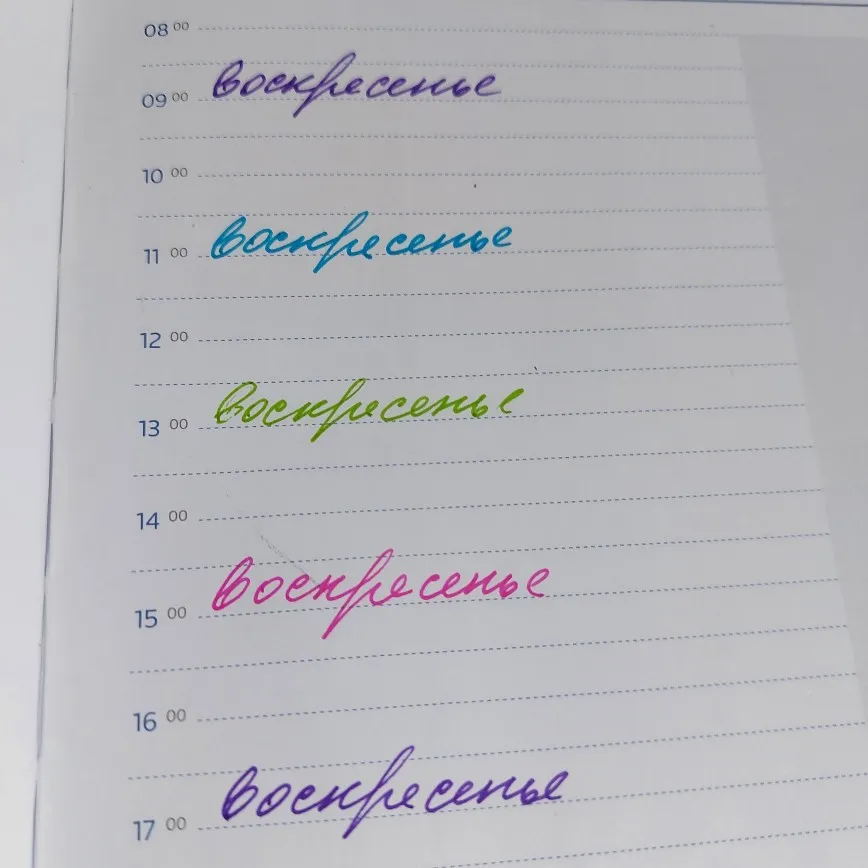 08 00
воскресенье
09 00
10 00
воскресенье
11 00
12 00
воскресенье
13 00
14 00
воскресенье
15 00
16 00
воскресенье
17 00